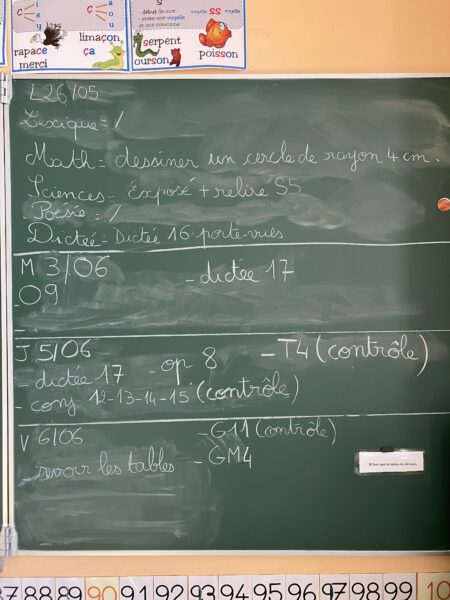 c
i
e
y
ç
a
o
u
rapace
merci
limaçon
ça
s
- début de mot
- entre une voyelle
et une consonne
serpent
ourson
voyelle ss voyelle
poisson
L26/05
Lexique = /
Math = dessiner un cercle de rayon 4 cm.
Sciences = Exposé + relire S5
Poésie = /
Dictée = Dictée 16 porte-vues
M 3/06 - dictée 17
09
-
J 5/06 - op 8 - T4 (contrôle)
- dictée 17
- conj 12-13-14-15. (contrôle)
V 6/06 - G11 (contrôle)
- revoir les tables - GM4
87 88 89 90 91 92 93 94 95 96 97 98 99 10